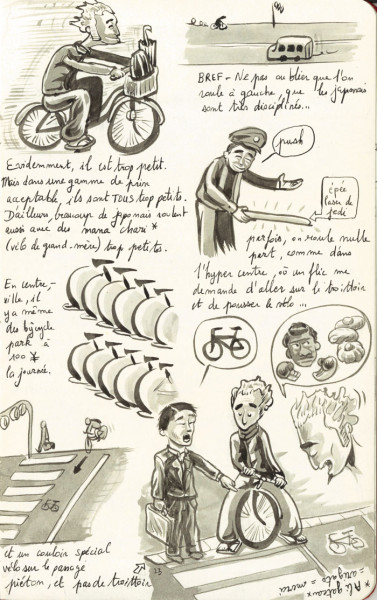 Evidemment, il est trop petit.
Mais dans une gamme de prix
acceptable, ils sont TOUS trop petits.
D'ailleurs, beaucoup de japonais roulent
aussi avec des mama chari *
(vélo de grand-mère) trop petits.
En centre-
ville, il
y a même
des bicycle
park à
100 ¥
la journée.
et un couloir spécial
vélo sur le passage
piéton, et pas de trottoir
BREF - Ne pas oublier que l'on
roule à gauche, que les japonais
sont très disciplinés...
push
épée
laser de
jedi
parfois, on roule nulle
part, comme dans
l'hyper centre, où un flic me
demande d'aller sur le trottoir
et de pousser le vélo...
23
* Ali gateaux
= arigato = merci